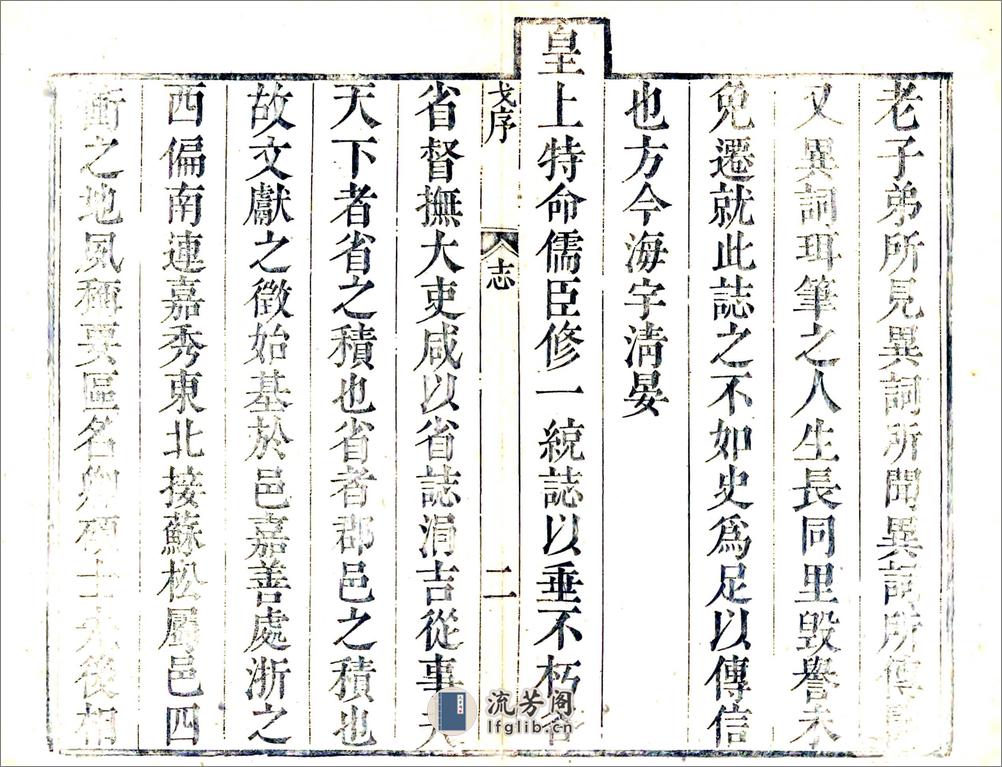 老子弟所見異詞所聞異詞所傳
又異詞珥筆之人生長同里毀譽未
免遷就此誌之不如史爲足以傳信
也方今海宇清晏
皇上特命儒臣修一統誌以垂不朽各
戈序 志 二
省督撫大吏咸以省誌涓吉從事夫
天下者省之積也省者郡邑之積也
故文獻之徵始基於邑嘉善處浙之
西偏南連嘉秀東北接蘇松屬邑四
衝之地夙稱要區名卿碩士後相
流芳阁
lfglib.cn